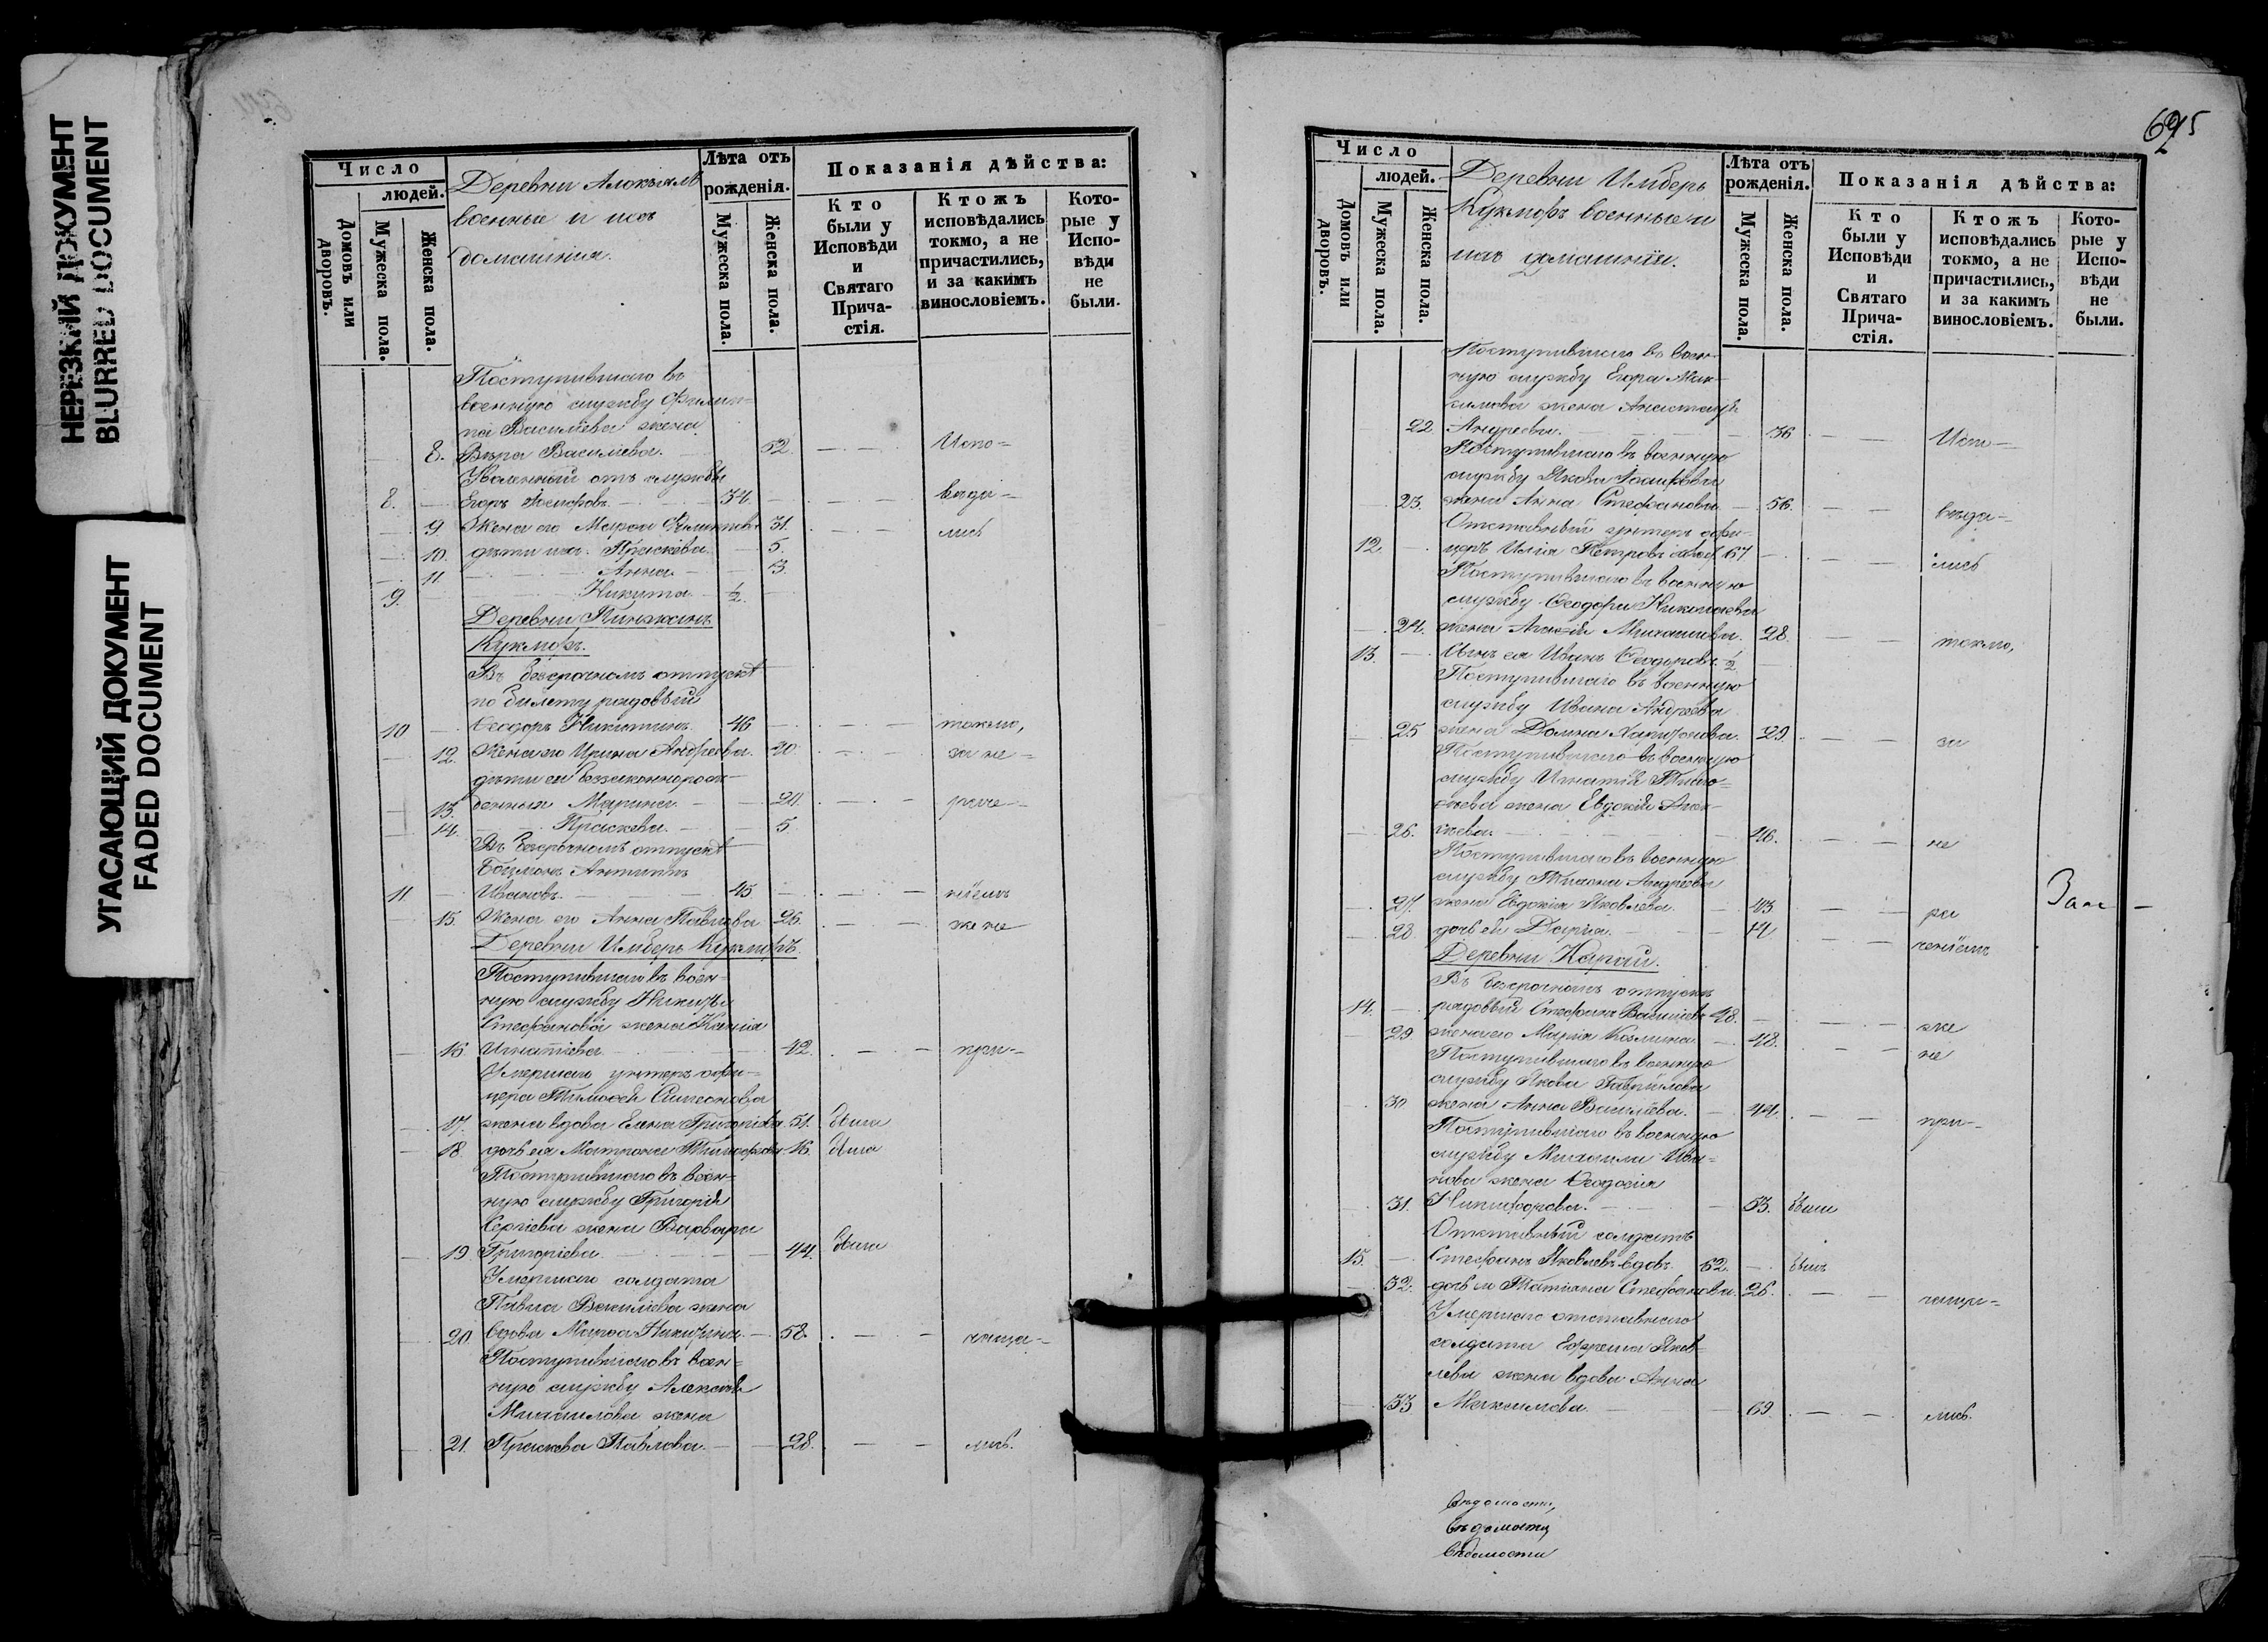 НЕРЕЗКИЙ ДОКУМЕНТ
BLURRED DOCUMENT
УГАСАЮЩИЙ ДОКУМЕНТ
FADED DOCUMENT
Число
людей.
Домовъ или дворовъ.
Мужеска пола.
Женска пола.
Деревни
военные и ихъ
домашнія.
Лѣта отъ
рожденія.
Мужеска пола.
Женска пола.
Показанія дѣйства:
Кто были у Исповѣди и Святаго Причастія.
Ктожъ исповѣдались токмо, а не причастились, и за какимъ винословіемъ.
Которые у Исповѣди не были.
Поступившаго въ
военную службу Филип=
па Василіева жена
8. Вѣра Василіева. 52 Испо=
Уволенный отъ службы
8. Егоръ Іосифовъ 34 вѣда=
9 Жена его Марѳа Филиппова 31. лись
10. дѣти ихъ. Праскева 5.
11 Анна 3.
9. Никита ½
Деревни
Кукморъ.
Въ безсрочномъ отпускѣ
по билету рядовый
10 Ѳеодоръ Никитинъ 46 токмо,
12. Жена его Ирина Андреева. 20. за не=
дѣти ея беззаконнорож=
13. денныя Марина 20. раче=
14. Праскева. 5.
Въ безсрочномъ отпускѣ
Боцманъ Антипъ
11 Ивановъ. 45 ніемъ
15. Жена его Анна Павлова 26. же не
Деревни Имберь Кукморъ.
Поступившаго въ воен=
ную службу Никиты
Стефанова жена Ксенія
16 Игнатіева 42. при=
Умершаго унтеръ офи=
цера Тимоѳея Симеонова
17. жена вдова Елена Григорьева. 51. была
18. дочь ея Матрона Тимоѳеева 16. была
Поступившаго въ воен=
ную службу Григорія
Сергіева жена Варвара
19 Григоріева 44. была
Умершаго солдата
Павла Василіева жена
20 вдова Марѳа Никитина 58. чаща=
Поступившаго въ воен=
ную службу Алексѣя
Михаилова жена
21. Праскева Павлова. 28. лись.
695
Число
людей.
Домовъ или дворовъ.
Мужеска пола.
Женска пола.
Деревни Имберь
Кукморъ военные и
ихъ домашнія.
Лѣта отъ
рожденія.
Мужеска пола.
Женска пола.
Показанія дѣйства:
Кто были у Исповѣди и Святаго Причастія.
Ктожъ исповѣдались токмо, а не причастились, и за какимъ винословіемъ.
Которые у Исповѣди не были.
Поступившаго въ воен=
ную службу Егора Мак=
симова жена Анастасія
22 Андреева. 36 Испо=
Поступившаго въ военную
службу Якова Іосифова
23. жена Анна Стефанова 56. вѣда=
Отставный унтеръ офи=
12. церъ Илія Петровъ вдов. 67 лись
Поступившаго въ военную
службу Ѳеодора Николаева
24. жена Михаилова. 28. токмо,
13. сынъ ея Иванъ Ѳеодоровъ ½
Поступившаго въ военную
службу Ивана Андреева
25 жена Домна 29. за
Поступившаго въ военную
службу Игнатія Тимо=
ѳеева жена Евдокія Алек=
26. сѣева. 46. не
Поступившаго въ военную
службу Андреева
27. жена Евдокія Яковлева. 43. ра
28 дочь ея Дарія. 14 ченіемъ
Зап
Деревни Карай.
Въ безсрочномъ отпускѣ
14. рядовый Стефанъ Василіевъ 48. же
29 жена его Марія Козмина 48. не
Поступившаго въ военную
службу Якова Гаврилова
30 жена Анна Василіева. 44. при=
Поступившаго въ военную
службу Михаила Ива=
нова жена Ѳеодосія
31. Никифорова. 53. была
Отставный солдатъ
15. Стефанъ Яковлевъ вдовъ 62. былъ
32. дочь его Татіана Стефанова. 26. чаща=
Умершаго отставнаго
солдата Ефрема Яков=
лева жена вдова Анна
33 Максимова 69 лись.
Вѣдомости,
Вѣдомости
Вѣдомости